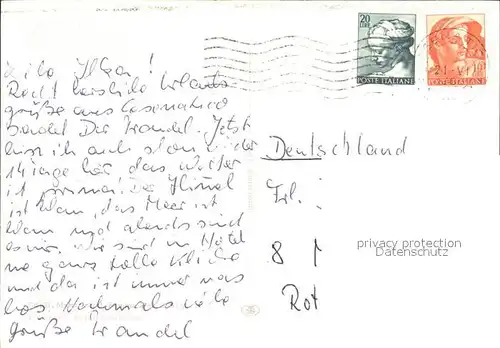 20
LIRE
POSTE ITALIANE
POSTE ITALIANE
21-VI
Liebe Ilka!
Recht herzliche Urlaubs-
grüße aus Cesenatico
sendet Dir Traudel. Jetzt
bin ich auch schon wieder
14 Tage hier, das Wetter
ist prima. Der Himmel
ist blau, das Meer ist
blau und abends sind
es wir. Wir sind im Hotel
ne ganz tolle Clique
und da ist immer was
los. Nochmals viele
Grüße Traudel
Deutschland
Frl.:
8
Rot
privacy protection
Datenschutz